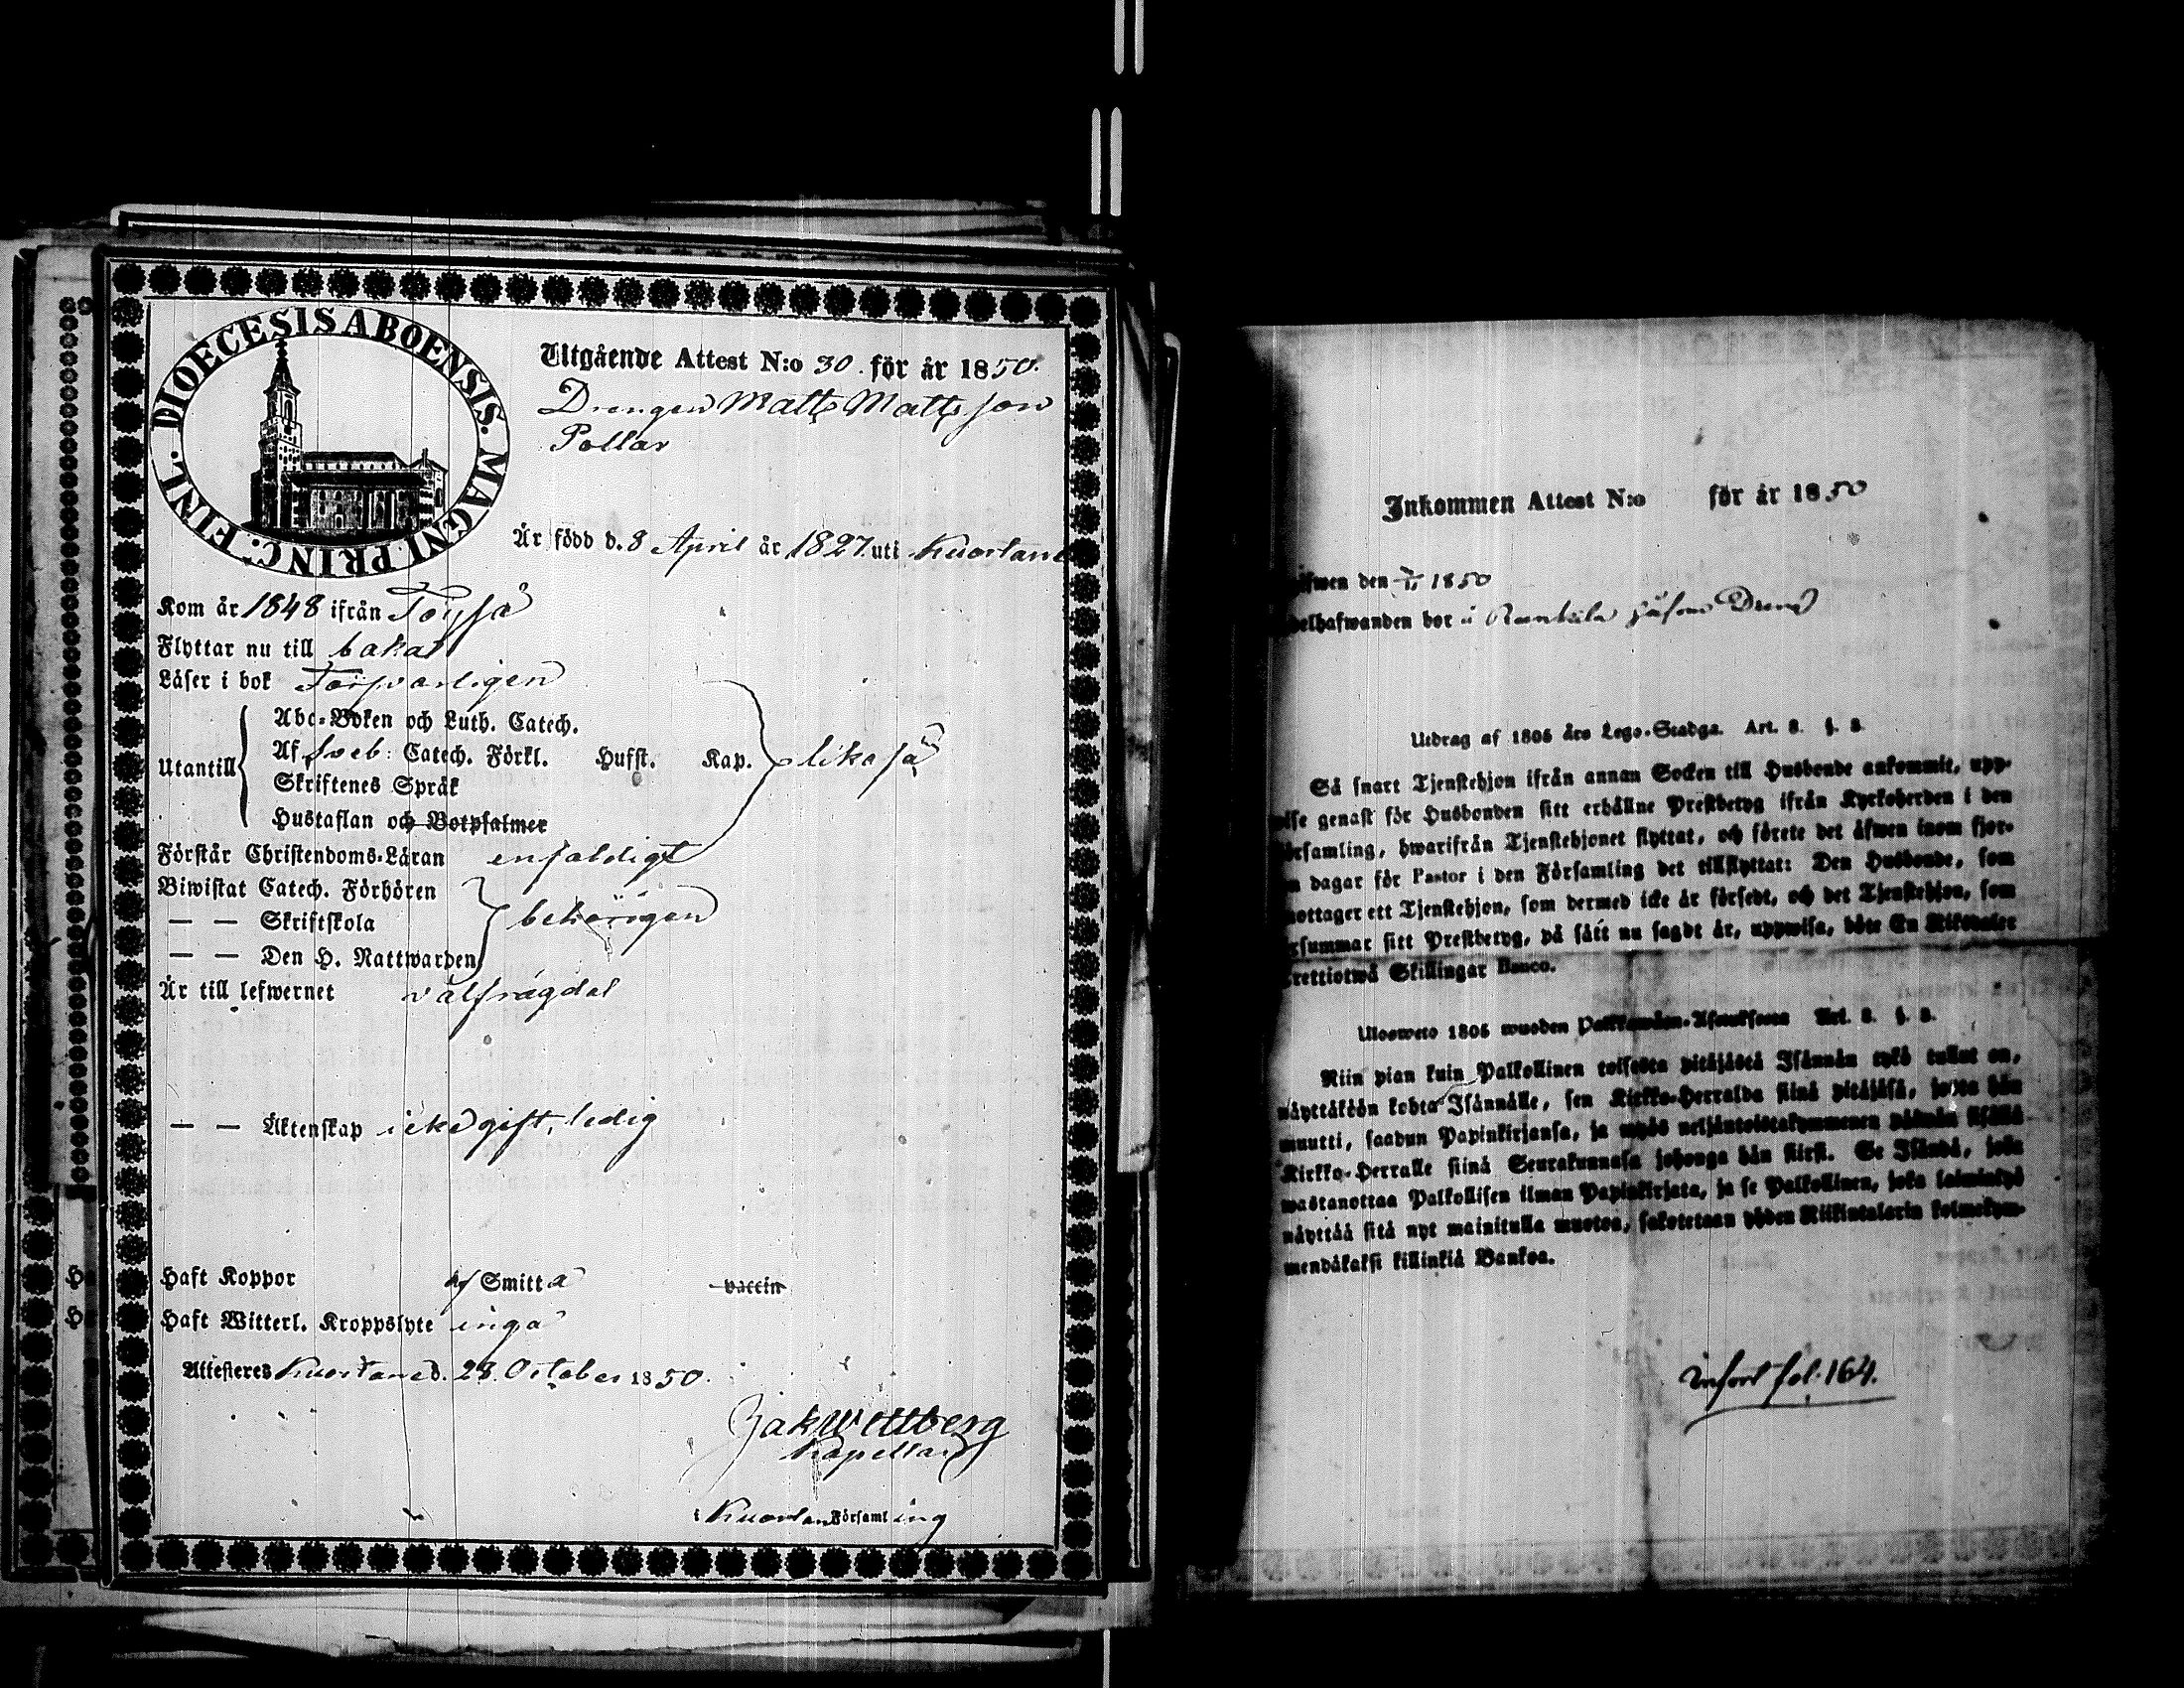 DIOECESIS ABOENSIS. MAGNI PRINC. FINL.
Utgående Attest N:o 30. för år 1850.
Drengen Matts Mattsson
Pollar
Är född d. 8 April år 1827 uti Kuortane
Kom år 1848 ifrån Töysä
Flyttar nu till baka
Läser i bok Försvarligen
Abc-Boken och Luth. Catech.
Utantill Af Sveb: Catech. Förkl. Hufst. Kap. lika så
Skriftenes Språk
Hustaflan och Botpsalmer
Förstår Christendoms-Läran enfaldigt
Biwistat Catech. Förhören
— — Skriftskola behörigen
— — Den H. Nattwarden
Är till lefwernet välfrägdat
— — Äktenskap icke gift, ledig
Haft Koppor af Smitta vaccin
Haft Witterl. Kroppslyte inga
Attesteras Kuortane d. 28. October 1850.
Jak Wettberg
Kapellan
i Kuortane Församling
Inkommen Attest N:o för år 1850
ifwen den 7/11 1850
delhafwanden bor i
Utdrag af 1805 års Lego-Stadga. Art. 8. §. 8.
Så snart Tjenstehjon ifrån annan Socken till Husbonde ankommit, upp-
wise genast för Husbonden sitt erhållne Prestbetyg ifrån Kyrkoherden i den
örsamling, hwarifrån Tjenstehjonet flyttat, och förete det äfwen inom fjor-
n dagar för Pastor i den Församling det tillflyttat: Den Husbonde, som
mottager ett Tjenstehjon, som dermed icke är försedt, och det Tjenstehjon, som
rsummar sitt Prestbetyg, på sätt nu sagdt är, uppwisa, böte En Riksdaler
trettiotwå Skillingar Banco.
Ulosweto 1805 wuoden Palkkawäen-Asetuksesta Art. 8. §. 8.
Niin pian kuin Palkollinen toisesta pitäjästä Isännän tykö tullut on,
näyttäköön kohta Isännälle, sen Kirkko-Herralda siinä pitäjäsä, josta hän
muutti, saadun Papinkirjansa, ja myös neljäntoistakymmenen päiwän sisällä
Kirkko-Herralle siinä Seurakunnasa johonga hän siirsi. Se Isändä, joka
wastanottaa Palkollisen ilman Papinkirjata, ja se Palkollinen, joka laiminlyö
näyttää sitä nyt mainitulla muotoa, sakotetaan yhden Riikintalarin kolmekym-
mendäkaksi killinkiä Bankoa.
Infört fol. 164.